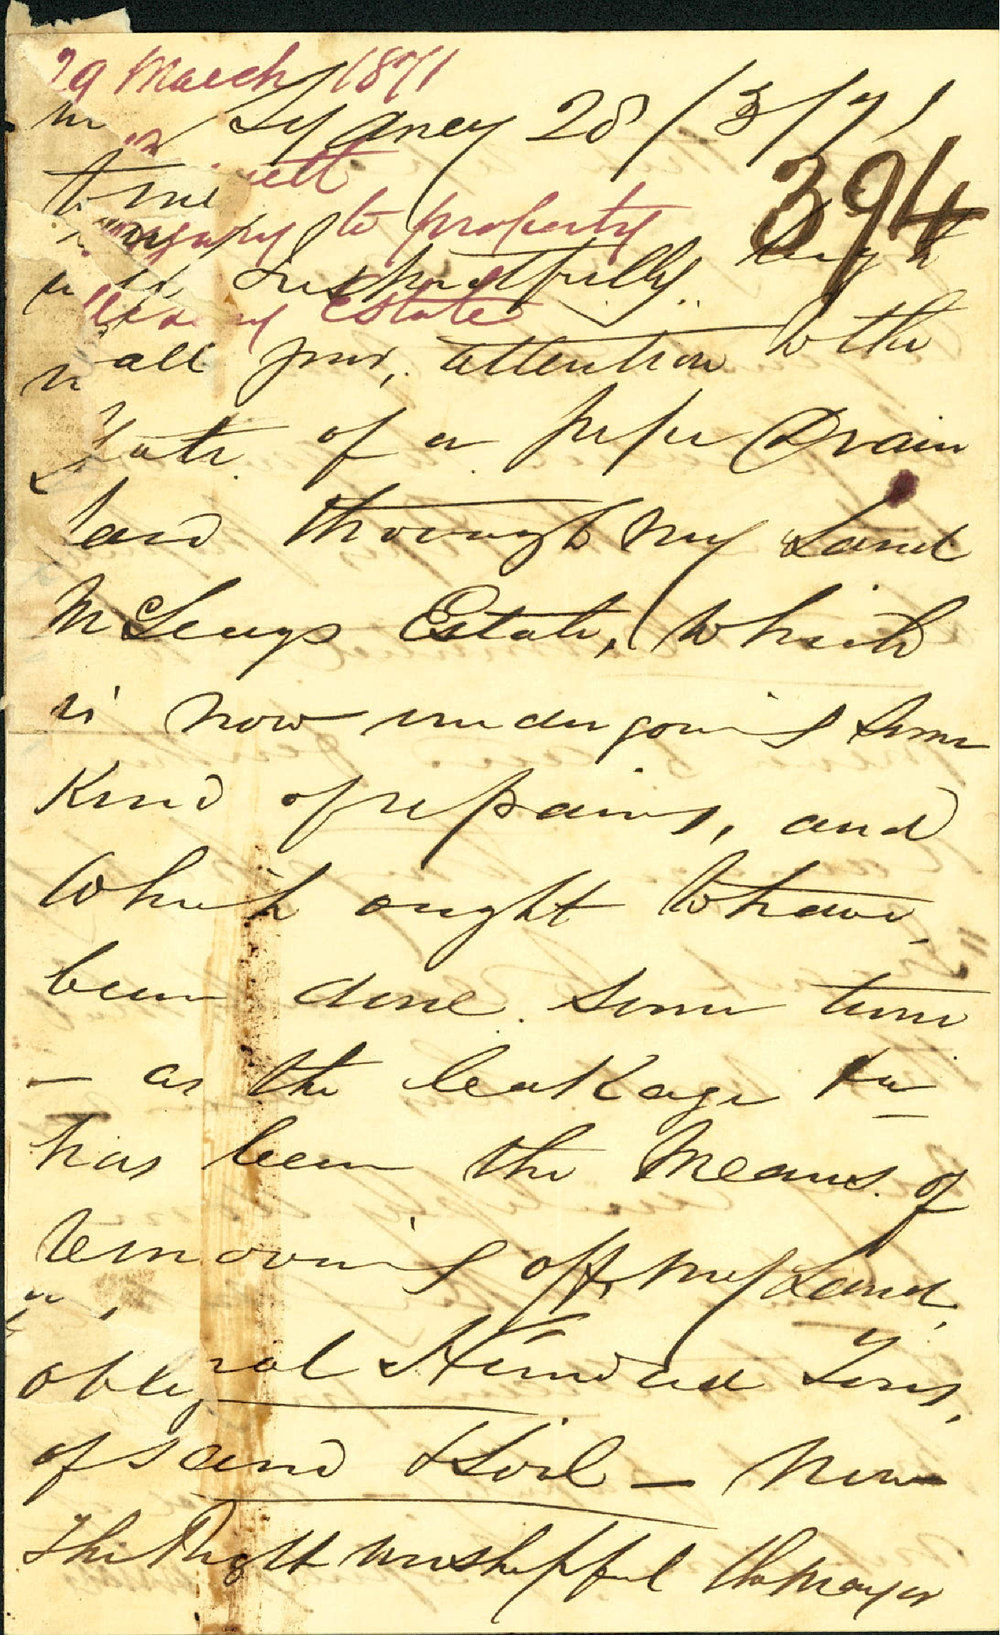 29 March 1871
Sydney 28/3/71
394
to me
ett
Injury to property
respectfully beg
Estate
call your, attention to the
State of a pipe Drain
laid through my Land
McLeays Estate, which
is now undergoing some
Kind of repairs, and
which ought to have,
been done some time
- as the leakage
has been the Means of
removing off my Land,
ral Hundred Tons,
of sand & Soil - now
The Right Worshipful the Mayor